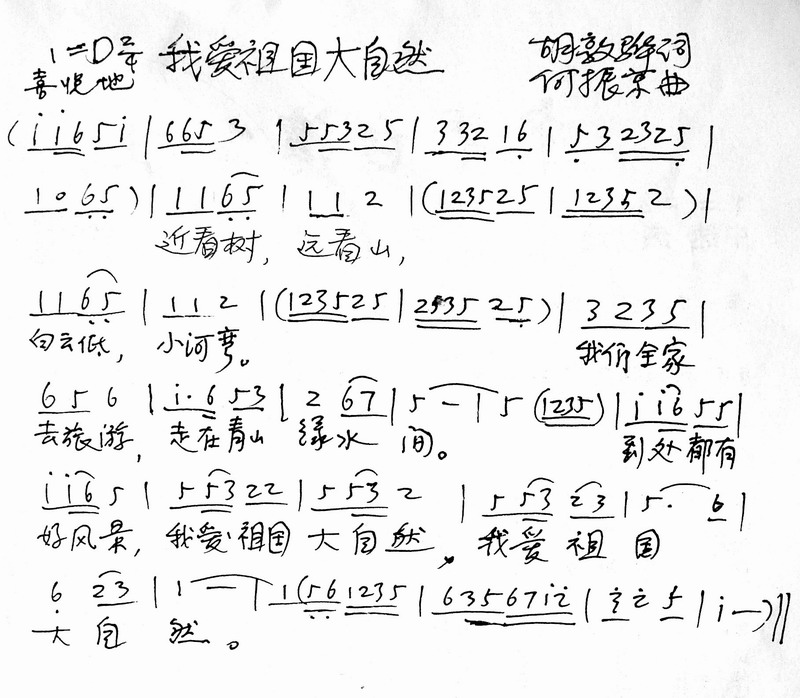 1=D 2/4 我爱祖国大自然 胡敦骅词
喜悦地 何振京曲
(i i 6 5 i | 6 6 5 3 | 5 5 3 2 5 | 3 3 2 1 6 | 5 3 2 3 2 5 |
1 0 6 5) | 1 1 6 5 | 1 1 2 | (1 2 3 5 2 5 | 1 2 3 5 2) |
近看树, 远看山,
1 1 6 5 | 1 1 2 | (1 2 3 5 2 5 | 2 5 3 5 2 5) | 3 2 3 5 |
白云低, 小河弯。 我们全家
6 5 6 | i· 6 5 3 | 2 6 7 | 5 — | 5 (1 2 3 5) | i i 6 5 5 |
去旅游, 走在青山 绿水 间。 到处都有
i i 6 5 | 5 5 3 2 2 | 5 5 3 2 | 5 5 3 2 3 | 5· 6 |
好风景, 我爱祖国 大自然, 我爱祖 国
6 2 3 | 1 — | 1 (5 6 1 2 3 5 | 6 3 5 6 7 i 2 | 3 2 5 | i —) ‖
大自 然。